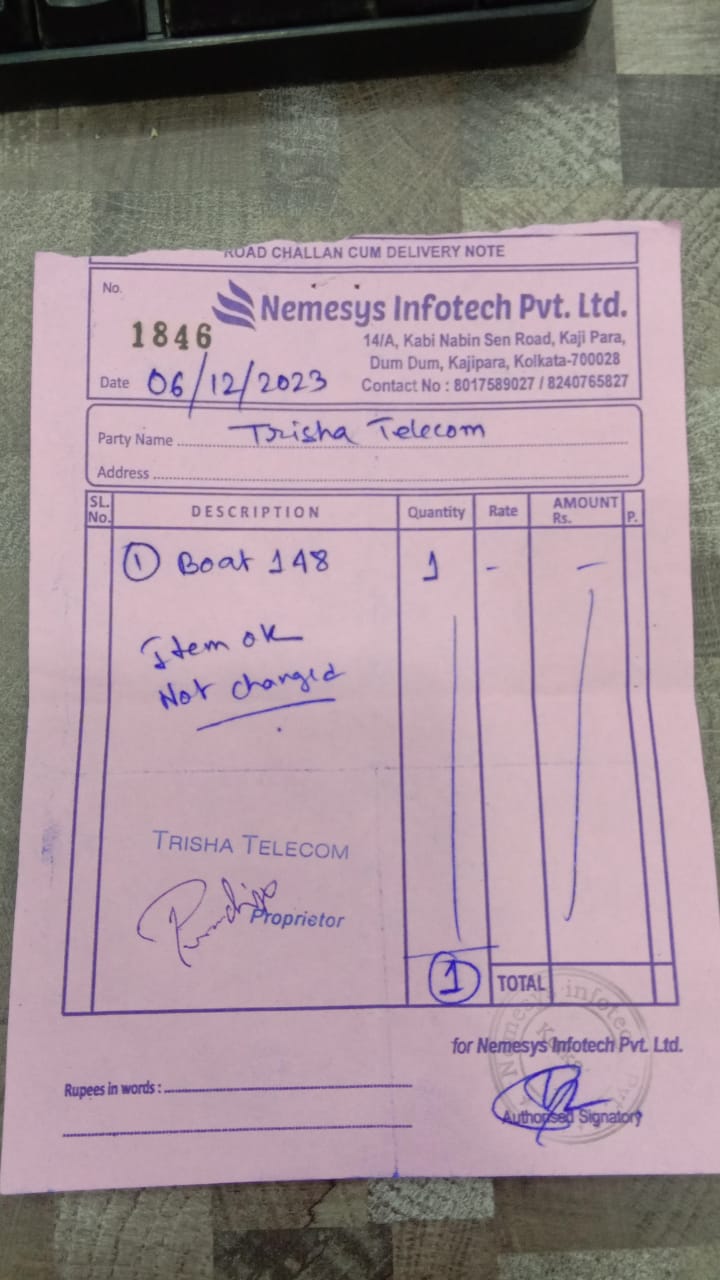 ROAD CHALLAN CUM DELIVERY NOTE
No.
1846
Nemesys Infotech Pvt. Ltd.
14/A, Kabi Nabin Sen Road, Kaji Para,
Dum Dum, Kajipara, Kolkata-700028
Contact No : 8017589027 / 8240765827
Date 06/12/2023
Party Name Trisha Telecom
Address
SL. No. DESCRIPTION Quantity Rate AMOUNT Rs. P.
① Boat 148 1 - -
Item ok
Not changed
TRISHA TELECOM
Proprietor
1 TOTAL
for Nemesys Infotech Pvt. Ltd.
Rupees in words :
Nemesys infotec
Authorised Signatory